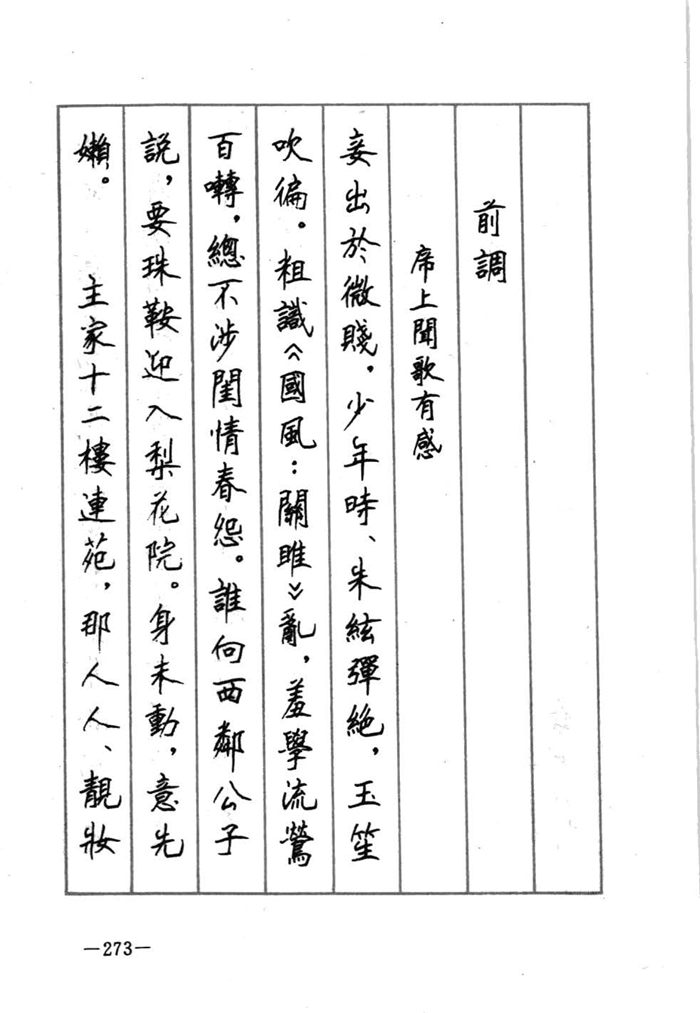 前調
席上聞歌有感
妾出於微賤，少年時、朱絃彈絶，玉笙
吹徧。粗識《國風：關雎》亂，羞學流鶯
百囀，總不涉閨情春怨。誰向西鄰公子
説，要珠鞍迎入梨花院。身未動，意先
嬾。　主家十二樓連苑，那人人、靚妝
—273—